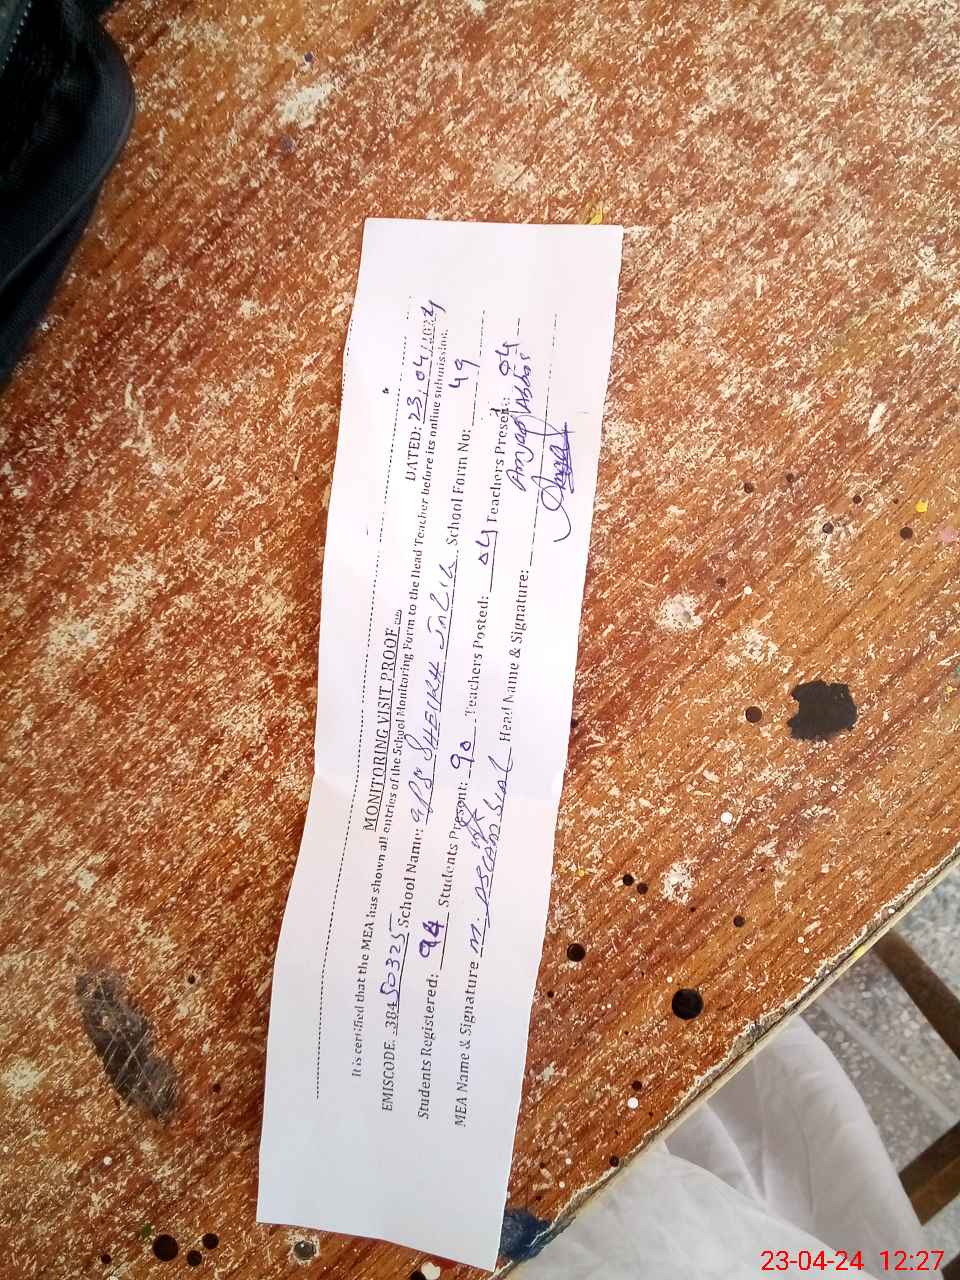 MONITORING VISIT PROOF
DATED: 23/04/2024
It is certified that the MEA has shown all entries of the School Monitoring Form to the Head Teacher before its online submission.
EMISCODE. 38450325 School Name: GPS SHEIKH JALIL School Form No: 49
Students Registered: 94 Students Present: 90 Teachers Posted: 04 Teachers Present: 04
MEA Name & Signature M. ASLAM SIAL Head Name & Signature: Amjad Abbas
23-04-24 12:27